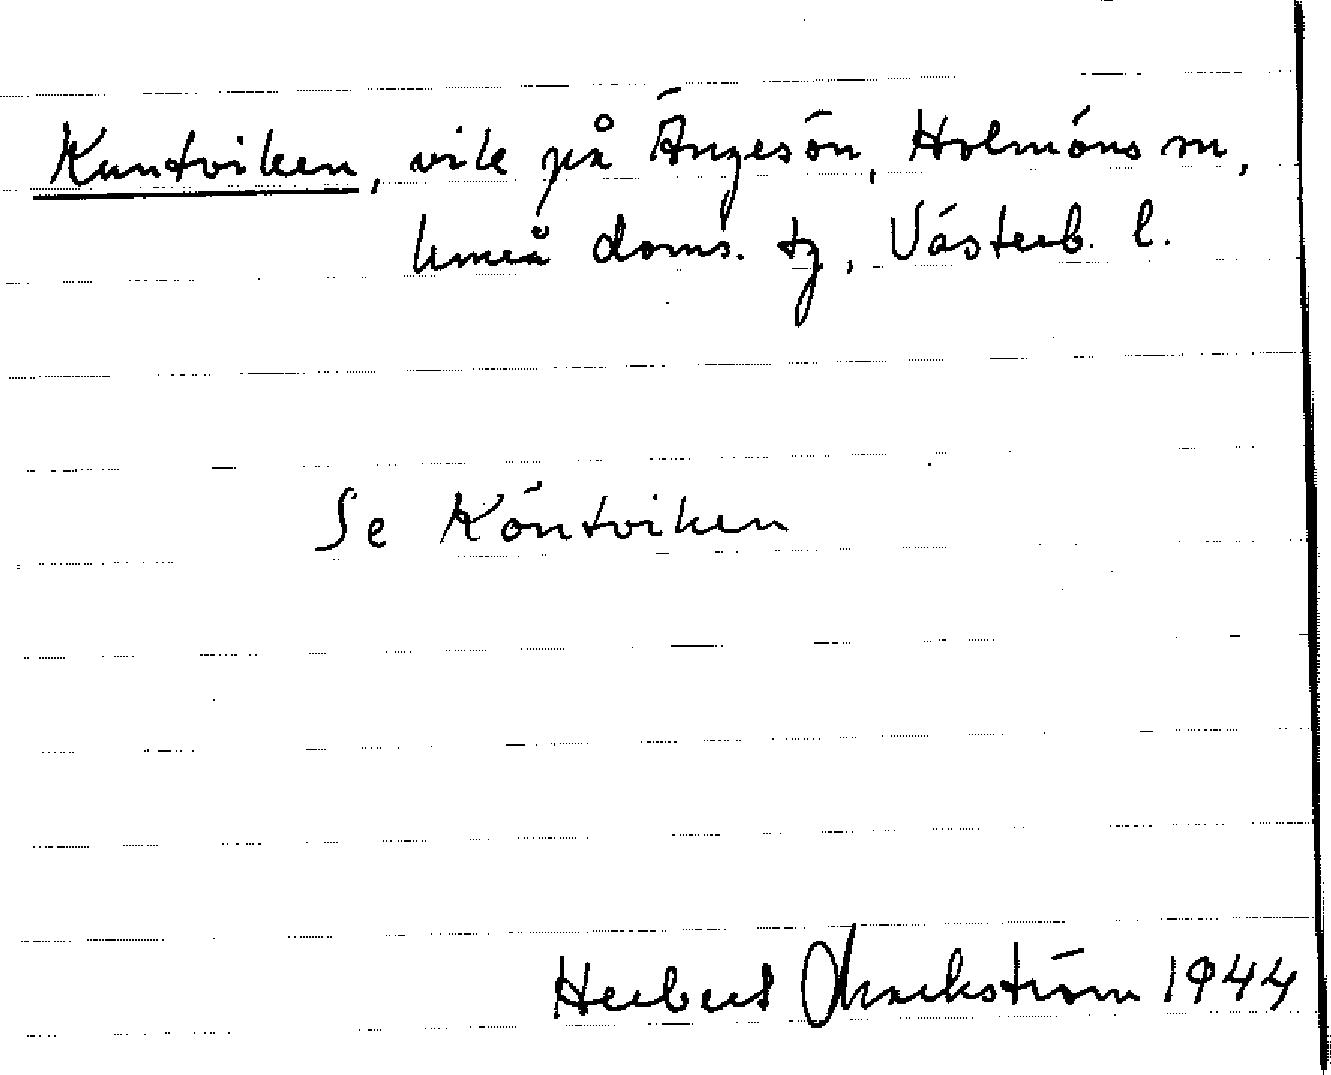 Kuntviken, vik på Ängesön, Holmöns sn,
Umeå doms. tg, Västerb. l.
Se Köntviken
Herbert Markström 1944